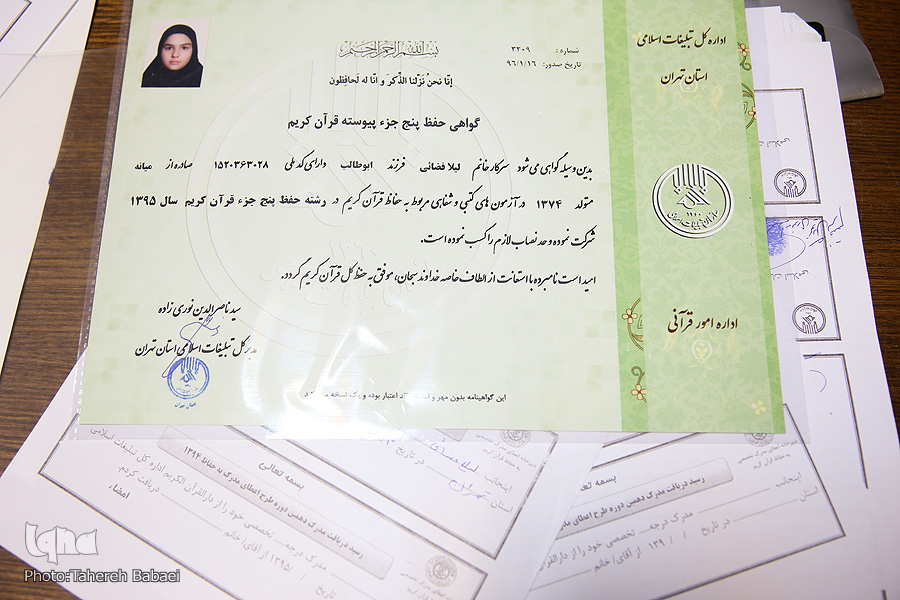 اداره کل تبلیغات اسلامی
استان تهران
بسم الله الرحمن الرحیم
شماره: ۳۲۰۹
تاریخ صدور: ۹۶/۱/۱۶
إنّا نحنُ نزّلنا الذّکرَ و انّا له لَحافِظون
گواهی حفظ پنج جزء پیوسته قرآن کریم
بدین وسیله گواهی می شود سرکار خانم لیلا فضائی فرزند ابوطالب دارای کد ملی ۱۵۲۰۳۶۳۰۲۸ صادره از میانه
متولد ۱۳۷۴ در آزمون های کتبی و شفاهی مربوط به حفاظ قرآن کریم در رشته حفظ پنج جزء قرآن کریم سال ۱۳۹۵
شرکت نموده و حد نصاب لازم را کسب نموده است.
امید است نامبرده با استعانت از الطاف خاصه خداوند سبحان، موفق به حفظ کل قرآن کریم گردد.
سید ناصرالدین نوری زاده
مدیر کل تبلیغات اسلامی استان تهران
این گواهینامه بدون مهر و اعتبار بوده و یک نسخه
سازمان تبلیغات اسلامی
اداره امور قرآنی
بسمه تعالی
رسید دریافت مدرک دهمین دوره طرح اعطای مدرک به حفاظ ۱۳۹۴
اینجانب
استان
در تاریخ
مدرک درجه تخصصی خود را از دارالقرآن الکریم اداره کل تبلیغات اسلامی
دریافت کردم.
امضاء
۱۳۹۵/ / از آقای/خانم
بسمه تعالی
رسید دریافت مدرک دهمین دوره طرح اعطای
اینجانب
استان
در تاریخ / / ۱۳۹ از آقای/خانم
مدرک درجه تخصصی خود را از دارالقرآن
iqna
Photo:Tahereh Babaei